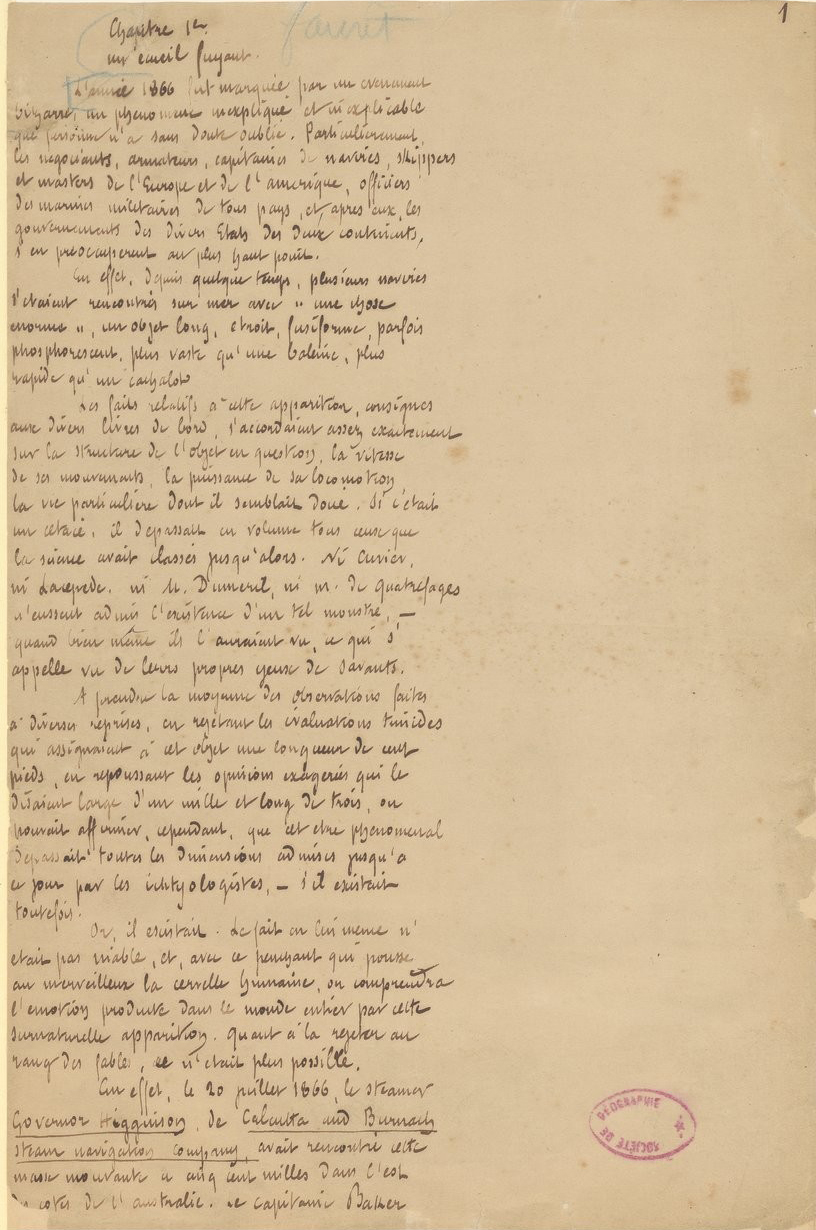 1
Chapitre 1er
un écueil fuyant.
L'année 1866 fut marquée par un événement
bizarre, un phénomène inexpliqué et inexplicable
que personne n'a sans doute oublié. Particulièrement,
les négociants, armateurs, capitaines de navires, skippers
et masters de l'Europe et de l'amérique, officiers
des marines militaires de tous pays, et, après eux, les
gouvernements des divers Etats des deux continents,
s'en préoccupèrent au plus haut point.
En effet, depuis quelque temps, plusieurs navires
s'étaient rencontrés sur mer avec " une chose
énorme ", un objet long, étroit, fusiforme, parfois
phosphorescent, plus vaste qu'une baleine, plus
rapide qu'un cachalot
Les faits relatifs à cette apparition, consignés
aux divers livres de bord, s'accordaient assez exactement
sur la structure de l'objet en question, la vitesse
de ses mouvements, la puissance de sa locomotion
la vie particulière dont il semblait doué. Si c'était
un cétacé, il dépassait en volume tous ceux que
la science avait classés jusqu'alors. Ni Cuvier,
ni Lacépède, ni M. Dumeril, ni m. de Quatrefages
n'eussent admis l'existence d'un tel monstre, —
quand bien même ils l'auraient vu, ce qui s'
appelle vu de leurs propres yeux de savants.
A prendre la moyenne des observations faites
à diverses reprises, en rejetant les évaluations timides
qui assignaient à cet objet une longueur de cent
pieds, en repoussant les opinions exagérées qui le
disaient large d'un mille et long de trois, on
pouvait affirmer, cependant, que cet être phénoménal
dépassait toutes les dimensions admises jusqu'à
ce jour par les ichtyologistes, — s'il existait
toutefois.
Or, il existait. Le fait en lui même n'
était pas niable, et, avec ce penchant qui pousse
au merveilleux la cervelle humaine, on comprendra
l'émotion produite dans le monde entier par cette
surnaturelle apparition. quant à la rejeter au
rang des fables, ce n'était plus possible.
En effet, le 20 juillet 1866, le steamer
Governor Higginson, de Calcutta and Burnach
steam navigation company, avait rencontré cette
masse mouvante à cinq cent milles dans l'est
des côtes de l'australie. Le capitaine Baker
SOCIÉTÉ DE GÉOGRAPHIE